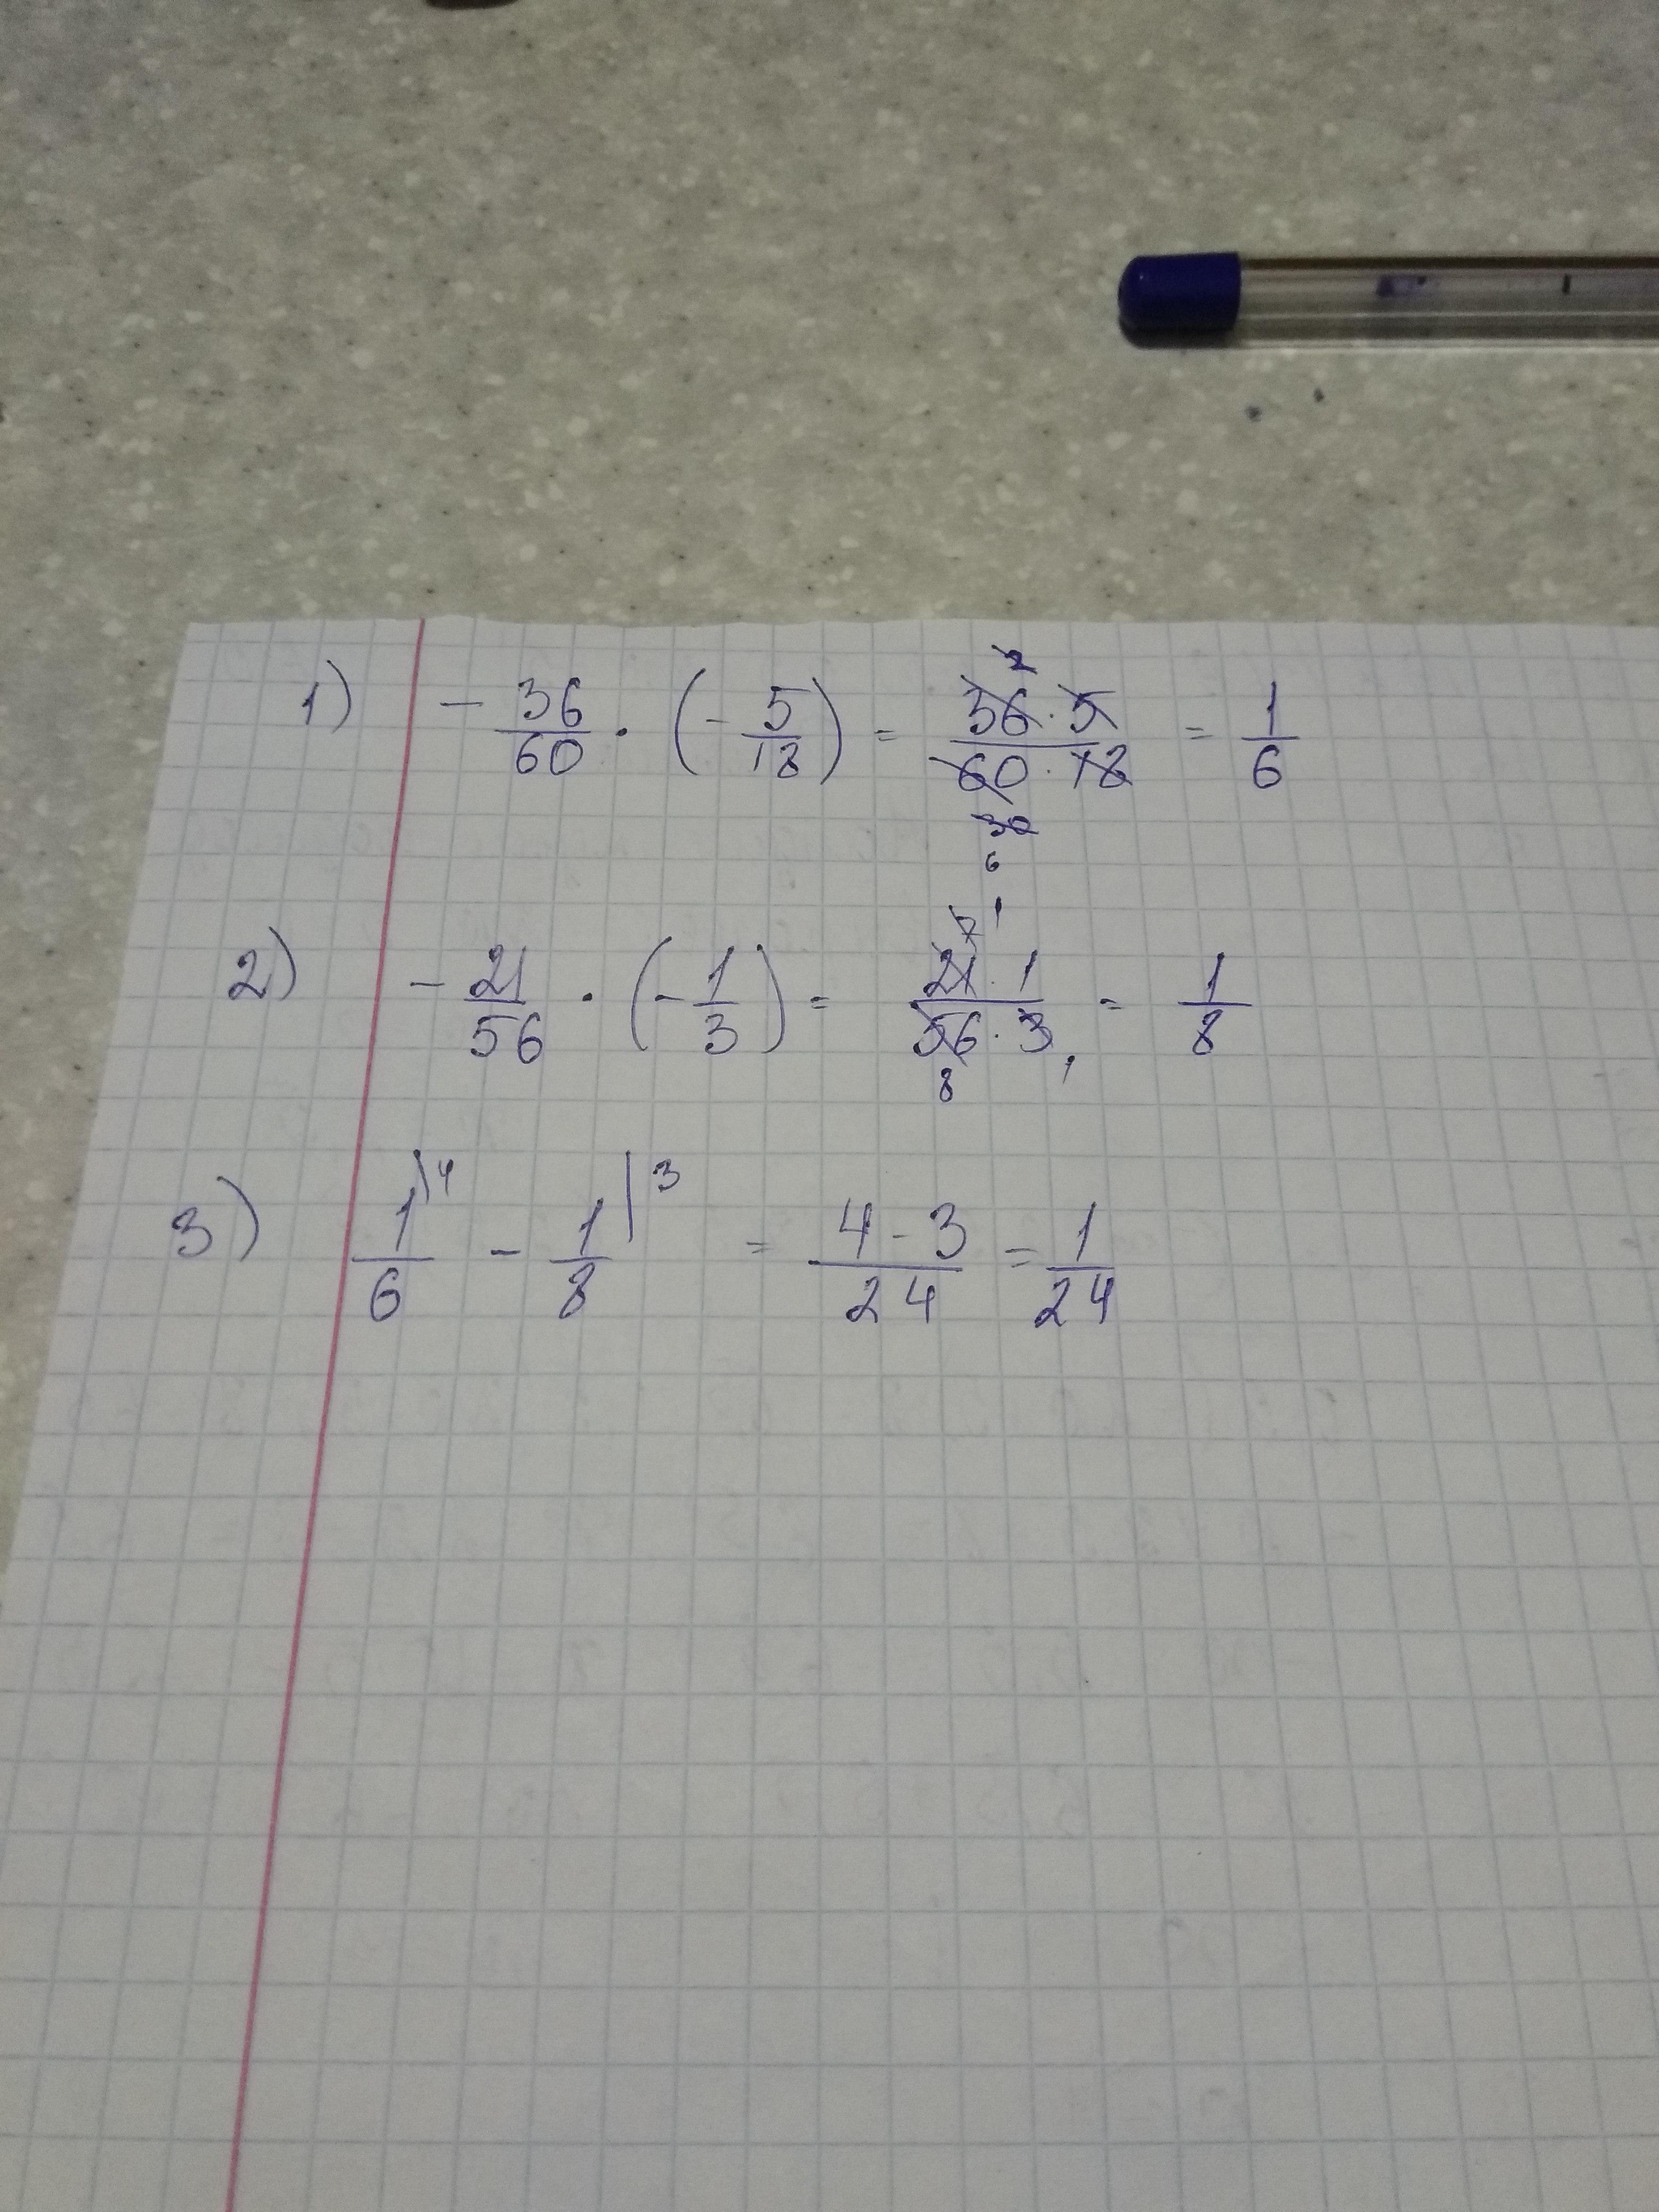 1) - 36/60 · (- 5/18) = 36 · 5 / 60 · 18 = 1/6
2) - 21/56 · (- 1/3) = 21 · 1 / 56 · 3 = 1/8
3) 1/6 |4 - 1/8 |3 = 4 - 3 / 24 = 1/24